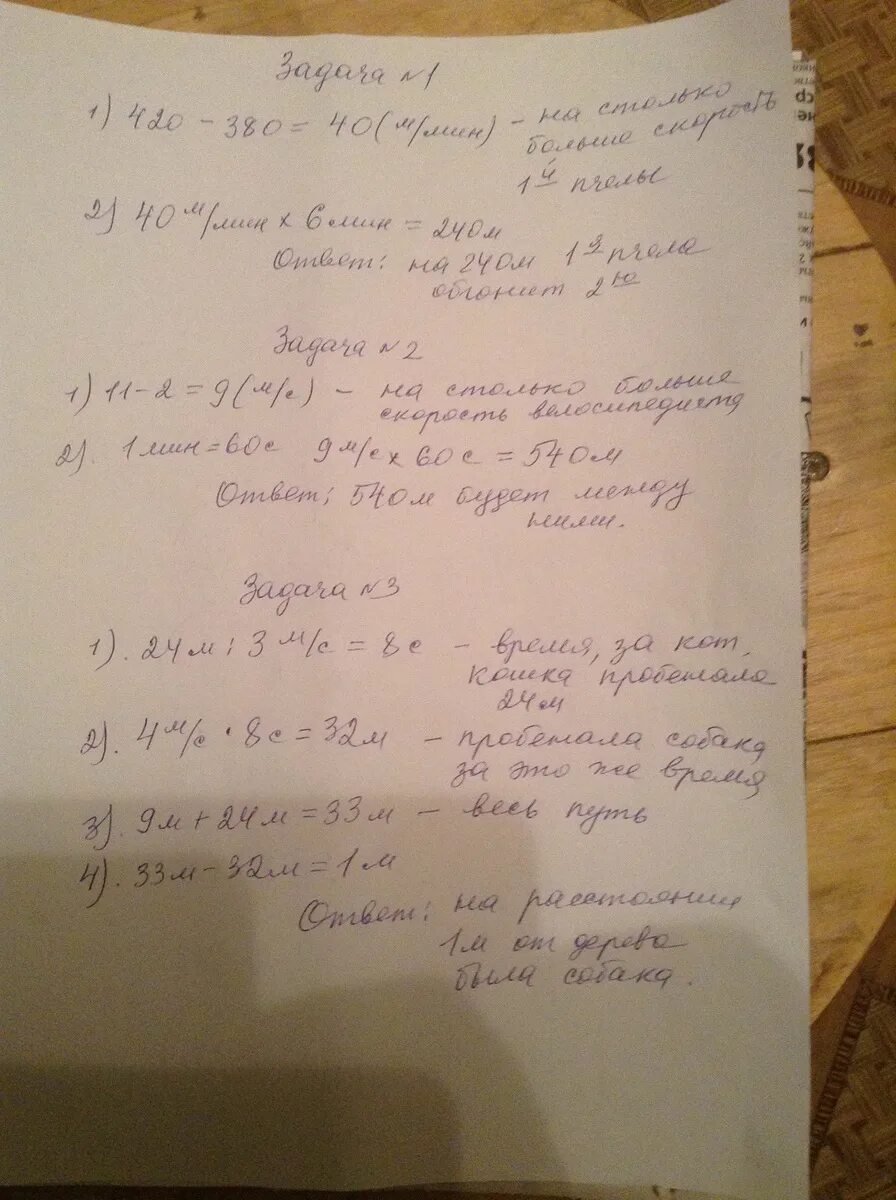 Задача №1
1) 420 - 380 = 40 (м/мин) - на столько
больше скорость
1й пчелы
2) 40 м/мин x 6 мин = 240м
Ответ: на 240м 1я пчела
обгонит 2ю
Задача №2
1) 11-2 = 9 (м/с) - на столько больше
скорость велосипедиста
2). 1 мин = 60с 9 м/с x 60с = 540м
Ответ: 540м будет между
ними.
Задача №3
1). 24м : 3 м/с = 8с - время, за кот.
кошка пробежала
24м
2). 4 м/с · 8с = 32м - пробежала собака
за это же время
3). 9м + 24м = 33м - весь путь
4). 33м - 32м = 1м
Ответ: на расстоянии
1м от дерева
была собака.